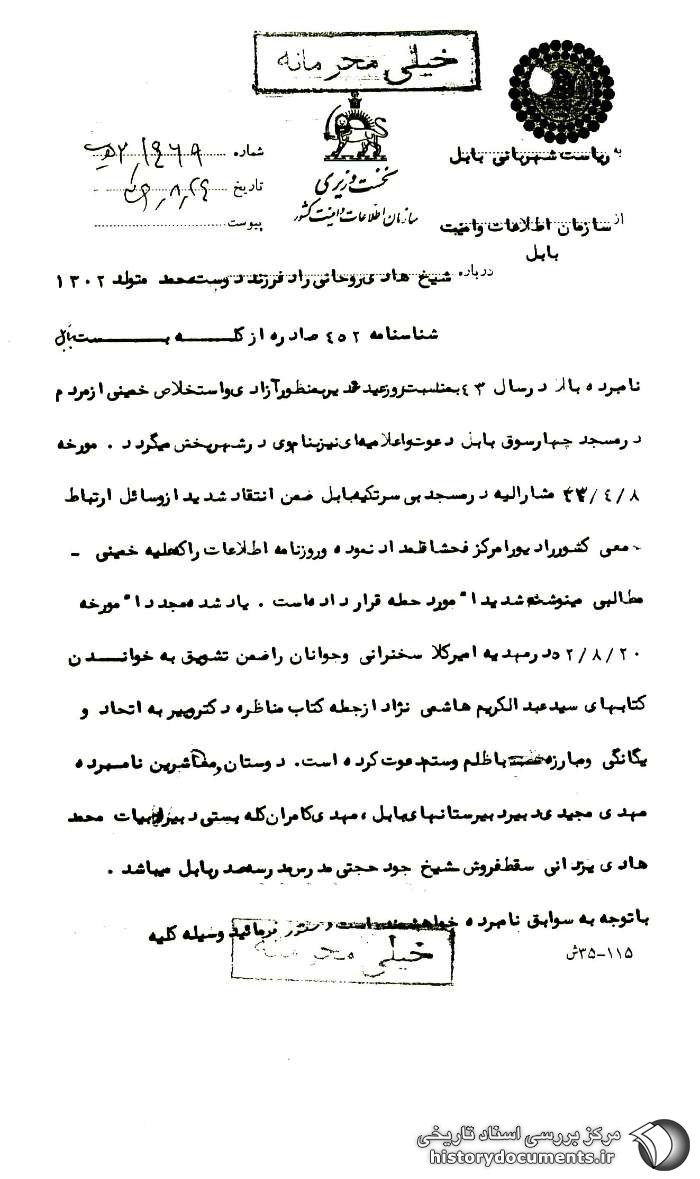 خیلی محرمانه
به ریاست شهربانی بابل
شماره
تاریخ
پیوست
نخست وزیری
سازمان اطلاعات و امنیت کشور
از سازمان اطلاعات وامنیت
بابل
درباره شیخ هادی روحانی راد فرزند دوست محمد متولد ۱۳۰۲
شناسنامه ۴۵۲ صادره از کله بست بابل
نامبرده بالا در سال ۴۳ بمناسبت روز عید غدیر بمنظور آزادی واستخلاص خمینی از مردم
در مسجد چهارسوق بابل دعوت واعلامیه ای نیز بنام وی در شهر پخش میگردد . مورخه
۴۳/۴/۸ مشارالیه در مسجد بی سر تکیه بابل ضمن انتقاد شدید از وسائل ارتباط
جمعی کشور رادیو را مرکز فحشا قلمداد نموده وروزنامه اطلاعات را که علیه خمینی -
مطالبی مینوشته شدیدا" مورد حمله قرار داده است . یاد شده مجددا" مورخه
۵۲/۸/۲۰ در مهدیه امیرکلا سخنرانی وجوانان را ضمن تشویق به خواندن
کتابهای سید عبدالکریم هاشمی نژاد از جمله کتاب مناظره دکتر و پیر به اتحاد و
یگانگی ومبارزه با ظلم وستم دعوت کرده است. دوستان ومعاشرین نامبرده
مهدی مجیدی دبیر دبیرستانهای بابل ، مهدی کامران کله بستی دبیر ادبیات محمد
هادی یزدانی سقط فروش شیخ جود حجتی مدرس مدرسه صدر بابل میباشد .
باتوجه به سوابق نامبرده خواهشمند است دستور فرمائید وسیله کلیه
۱۱۵-۳۵ش
خیلی محرمانه
مرکز بررسی اسناد تاریخی
historydocuments.ir